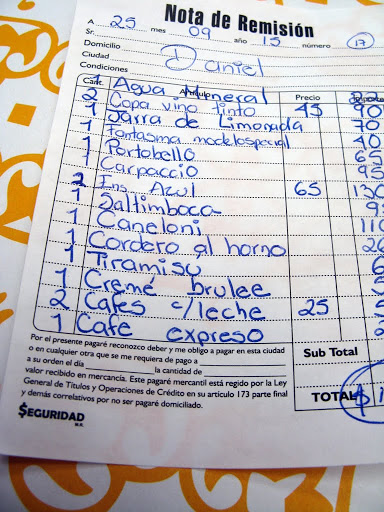 Nota de Remisión
A 25 mes 09 año 15 número 17
Sr.
Domicilio
Ciudad Daniel
Condiciones
Cant. Artículo Precio
Agua mineral 22
2 Copa vino tinto 45 90
1 Jarra de Limonada 70
1 Fantasma modelo special 40
1 Portobello 65
1 Carpaccio 95
2 Ens. Azul 65 130
1 Saltimboca
1 Caneloni 110
1 Cordero al horno
1 Tiramisu
1 Creme brulee
2 Cafes c/leche 25
1 Cafe expreso
Por el presente pagaré reconozco deber y me obligo a pagar en esta ciudad
o en cualquier otra que se me requiera de pago a
a su orden el día la cantidad de
valor recibido en mercancía. Este pagaré mercantil está regido por la Ley
General de Títulos y Operaciones de Crédito en su artículo 173 parte final
y demás correlativos por no ser pagaré domiciliado.
Sub Total
TOTAL $
SEGURIDAD
M.R.